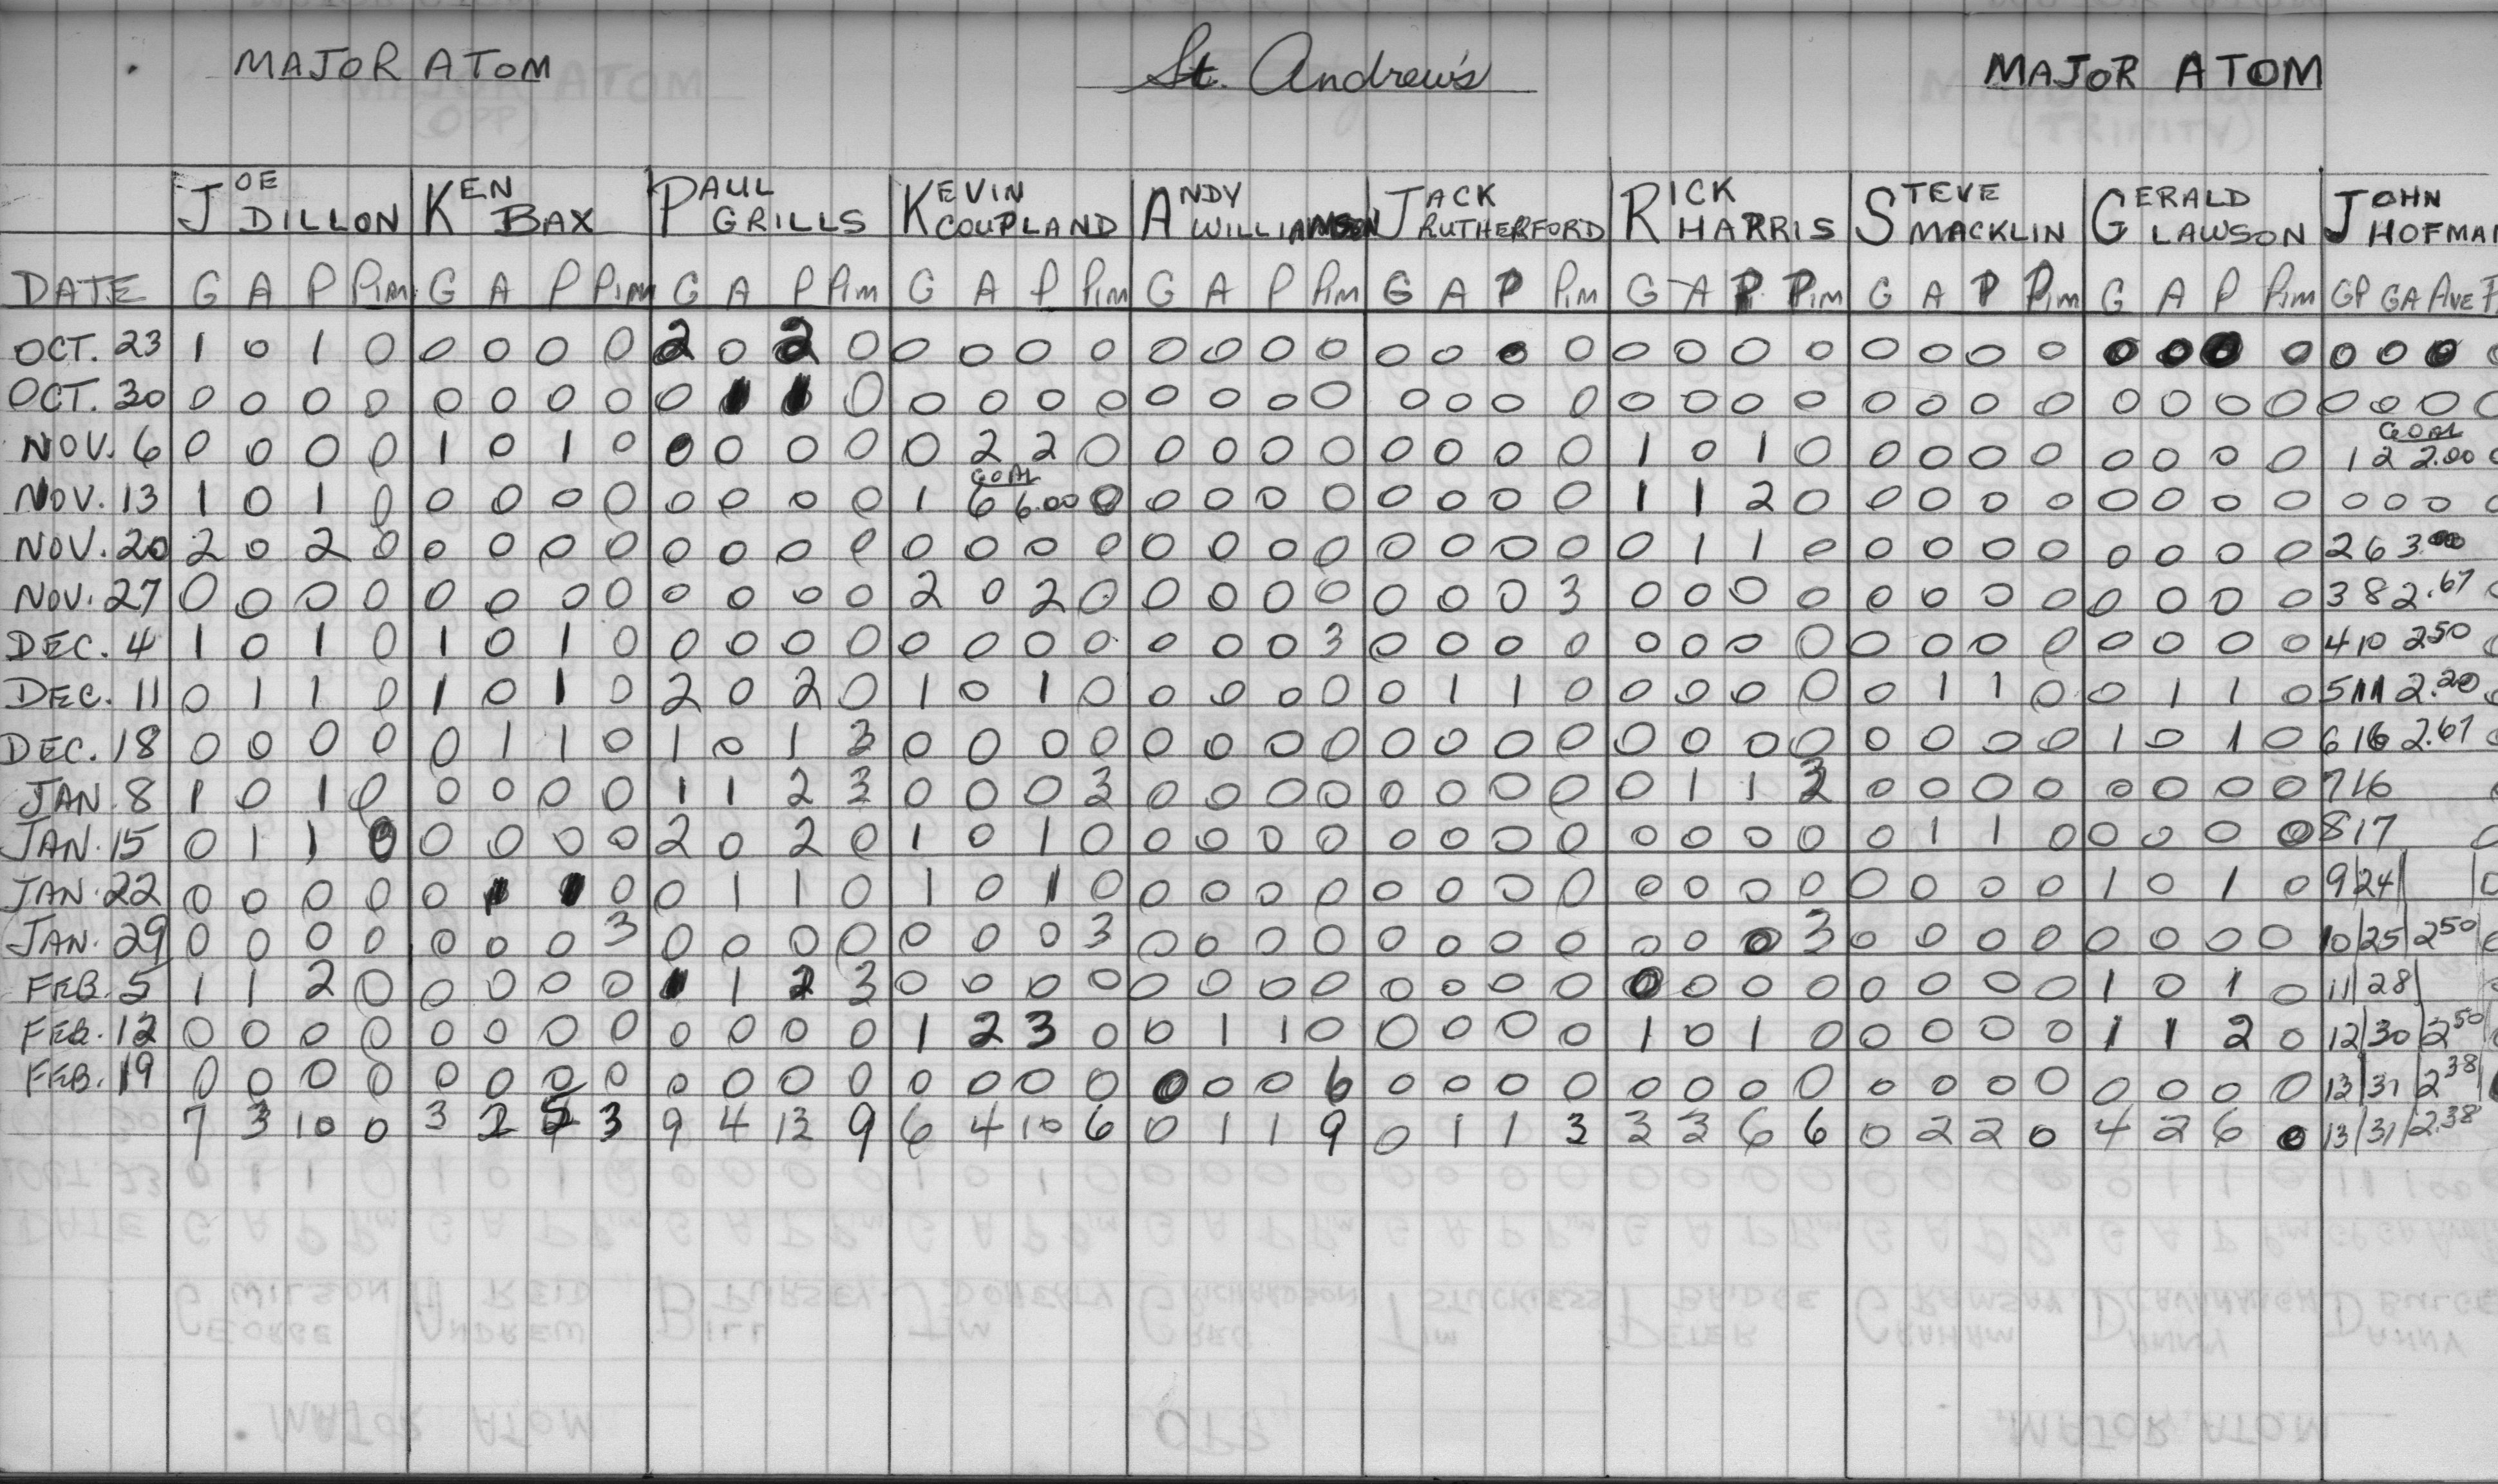 MAJOR ATOM St. Andrew's MAJOR ATOM
JOE DILLON KEN BAX PAUL GRILLS KEVIN COUPLAND ANDY WILLIAMSON JACK RUTHERFORD RICK HARRIS STEVE MACKLIN GERALD LAWSON JOHN HOFMA
DATE G A P PIM G A P PIM G A P PIM G A P PIM G A P PIM G A P PIM G A P PIM G A P PIM G A P PIM GP GA AVE P
OCT. 23 1 0 1 0 0 0 0 0 2 0 2 0 0 0 0 0 0 0 0 0 0 0 0 0 0 0 0 0 0 0 0 0 0 0 0 0 0 0 0 0
OCT. 30 0 0 0 0 0 0 0 0 0 1 1 0 0 0 0 0 0 0 0 0 0 0 0 0 0 0 0 0 0 0 0 0 0 0 0 0 0 0 0 0
NOV. 6 0 0 0 0 1 0 1 0 0 0 0 0 0 2 2 0 0 0 0 0 0 0 0 0 1 0 1 0 0 0 0 0 0 0 0 0 GOAL 1 2 2.00 0
NOV. 13 1 0 1 0 0 0 0 0 0 0 0 0 GOAL 1 6 6.00 0 0 0 0 0 0 0 0 0 1 1 2 0 0 0 0 0 0 0 0 0 0 0 0 0
NOV. 20 2 0 2 0 0 0 0 0 0 0 0 0 0 0 0 0 0 0 0 0 0 0 0 0 0 1 1 0 0 0 0 0 0 0 0 0 2 6 3.00
NOV. 27 0 0 0 0 0 0 0 0 0 0 0 0 2 0 2 0 0 0 0 0 0 0 0 3 0 0 0 0 0 0 0 0 0 0 0 0 3 8 2.67 0
DEC. 4 1 0 1 0 1 0 1 0 0 0 0 0 0 0 0 0 0 0 0 3 0 0 0 0 0 0 0 0 0 0 0 0 0 0 0 0 4 10 2.50 0
DEC. 11 0 1 1 0 1 0 1 0 2 0 2 0 1 0 1 0 0 0 0 0 0 1 1 0 0 0 0 0 0 1 1 0 0 1 1 0 5 11 2.20 0
DEC. 18 0 0 0 0 0 1 1 0 1 0 1 3 0 0 0 0 0 0 0 0 0 0 0 0 0 0 0 0 0 0 0 0 1 0 1 0 6 16 2.67 0
JAN. 8 1 0 1 0 0 0 0 0 1 1 2 3 0 0 0 3 0 0 0 0 0 0 0 0 0 1 1 3 0 0 0 0 0 0 0 0 7 16
JAN. 15 0 1 1 0 0 0 0 0 2 0 2 0 1 0 1 0 0 0 0 0 0 0 0 0 0 0 0 0 0 1 1 0 0 0 0 0 8 17 0
JAN. 22 0 0 0 0 0 1 1 0 0 1 1 0 1 0 1 0 0 0 0 0 0 0 0 0 0 0 0 0 0 0 0 0 1 0 1 0 9 24 0
JAN. 29 0 0 0 0 0 0 0 3 0 0 0 0 0 0 0 3 0 0 0 0 0 0 0 0 0 0 0 3 0 0 0 0 0 0 0 0 10 25 2.50 0
FEB. 5 1 1 2 0 0 0 0 0 1 1 2 3 0 0 0 0 0 0 0 0 0 0 0 0 0 0 0 0 0 0 0 0 1 0 1 0 11 28
FEB. 12 0 0 0 0 0 0 0 0 0 0 0 0 1 2 3 0 0 1 1 0 0 0 0 0 1 0 1 0 0 0 0 0 1 1 2 0 12 30 2.50 0
FEB. 19 0 0 0 0 0 0 0 0 0 0 0 0 0 0 0 0 0 0 0 6 0 0 0 0 0 0 0 0 0 0 0 0 0 0 0 0 13 31 2.38
7 3 10 0 3 2 5 3 9 4 13 9 6 4 10 6 0 1 1 9 0 1 1 3 3 3 6 6 0 2 2 0 4 2 6 0 13 31 2.38